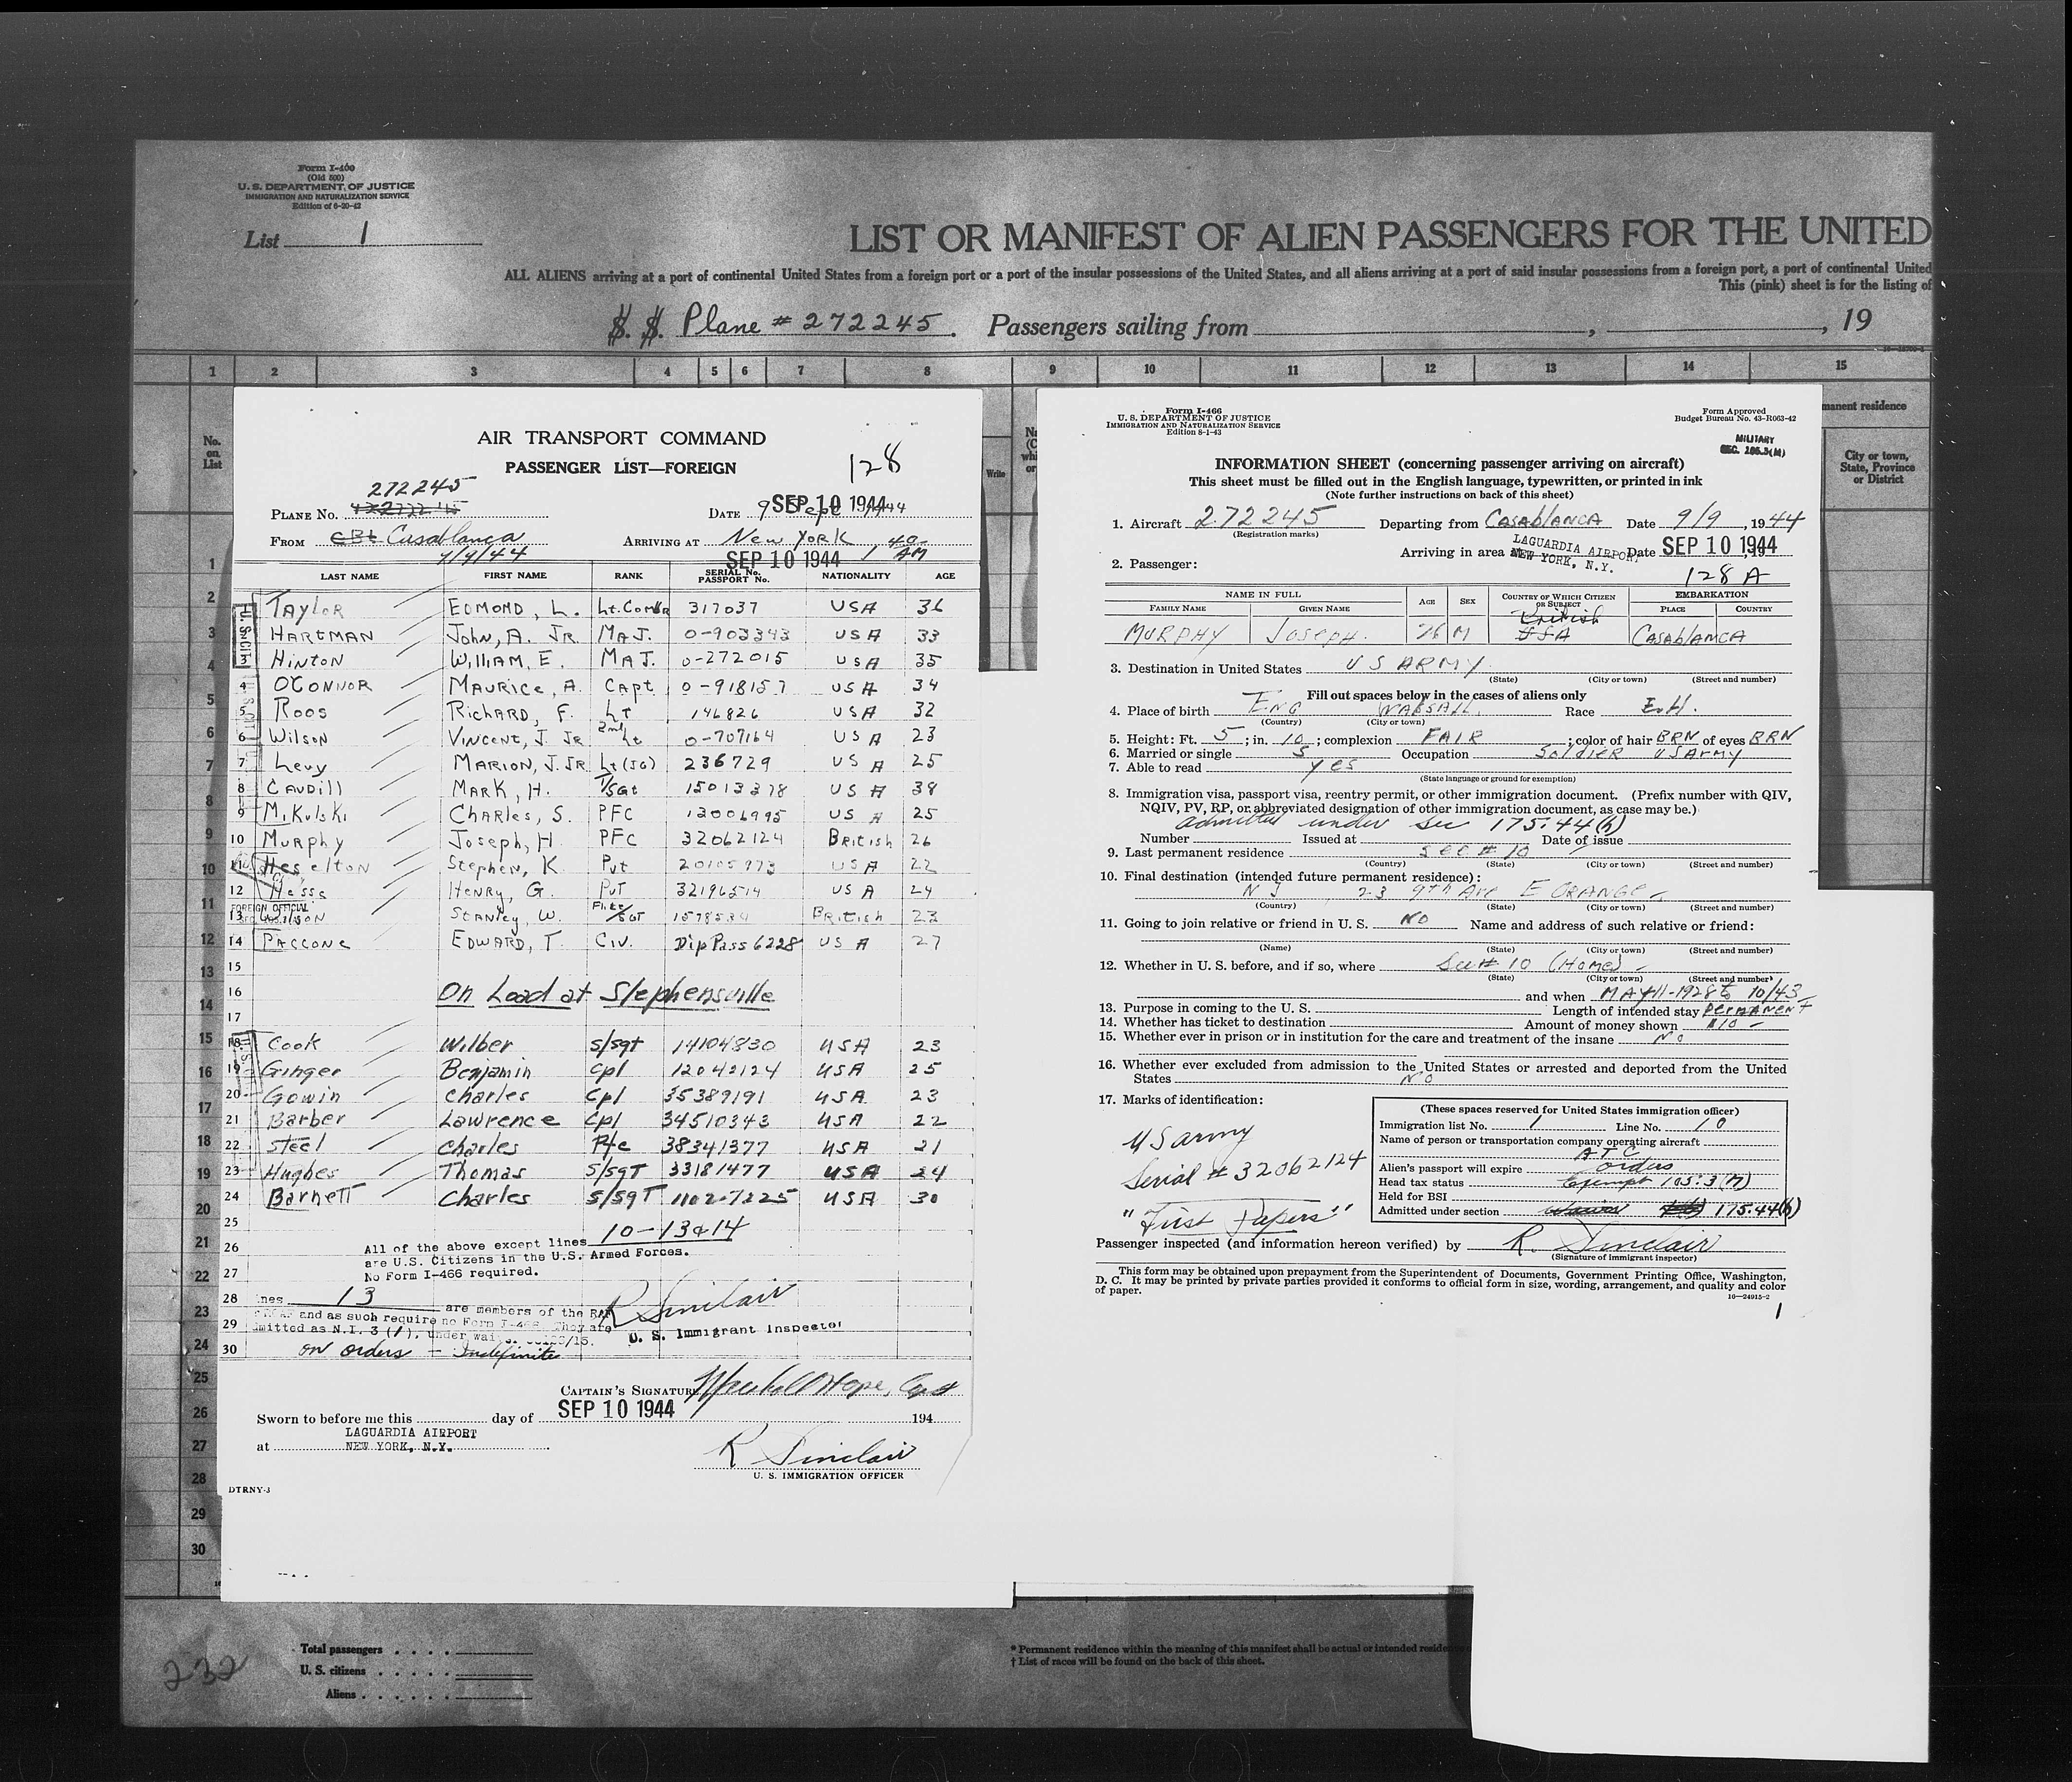 Form I-400
(Old 500)
U. S. DEPARTMENT OF JUSTICE
IMMIGRATION AND NATURALIZATION SERVICE
Edition of 6-20-42
List 1
LIST OR MANIFEST OF ALIEN PASSENGERS FOR THE UNITED
ALL ALIENS arriving at a port of continental United States from a foreign port or a port of the insular possessions of the United States, and all aliens arriving at a port of said insular possessions from a foreign port, a port of continental United
This (pink) sheet is for the listing of
S. S. Plane # 272245. Passengers sailing from , , 19
1 2 3 4 5 6 7 8 9 10 11 12 13 14 15
No. on List
Write
manent residence
City or town, State, Province or District
AIR TRANSPORT COMMAND
PASSENGER LIST—FOREIGN
128
272245
PLANE No. DATE 9 Sept 1944 SEP 10 1944
FROM Casablanca ARRIVING AT New York 1 40 AM
9/9/44 SEP 10 1944
LAST NAME FIRST NAME RANK SERIAL No. PASSPORT No. NATIONALITY AGE
Taylor EDMOND, L. Lt. Comdr 317037 USA 36
HARTMAN John, A. JR. MAJ. 0-903343 USA 33
3 HINTON WILLIAM, E. MAJ. 0-272015 USA 35
4 O'CONNOR MAURICE, A. CAPT. 0-918157 USA 34
5 Roos RICHARD, F. Lt 146826 USA 32
6 WILSON VINCENT, J. JR 2nd Lt 0-707164 USA 23
7 Levy MARION, J. JR Lt (JG) 236729 USA 25
8 CAUDILL MARK, H. T/Sgt 15013378 USA 38
9 Mikulski CHARLES, S. PFC 12006995 USA 25
10 MURPHY Joseph, H PFC 32062124 British 26
11 Heselton Stephen, K. Pvt 20105973 USA 22
12 Hesse HENRY, G. PVT 32196514 USA 24
FOREIGN OFFICIAL
13 Wilson STANLEY, W. Flt/SGT 1578534 BRITISH 23
14 PACCONE EDWARD, T. CIV. Dip Pass 6228 USA 27
15
16 On Load at Stephensville
17
18 Cook Wilber S/Sgt 14104830 USA 23
19 Ginger Benjamin Cpl 12042124 USA 25
20 Gowin Charles Cpl 35389191 USA 23
21 Barber Lawrence Cpl 34510343 USA 22
22 Steel Charles Pfc 38341377 USA 21
23 Hughes Thomas S/SgT 33181477 USA 24
24 Barnett Charles S/SgT 11027225 USA 30
25 10-13&14
26 All of the above except lines
are U.S. Citizens in the U.S. Armed Forces.
27 No Form I-466 required.
28 nes 13 are members of the RAF
29 and as such require no Form I-466. They are
mitted as N.I. 3 (1), under
30 on orders — Indefinite
R Sinclair
U. S. Immigrant Inspector
CAPTAIN'S SIGNATURE Hope, Capt
Sworn to before me this day of SEP 10 1944 194
at LAGUARDIA AIRPORT
NEW YORK, N.Y.
R Sinclair
U. S. IMMIGRATION OFFICER
DTRNY-3
1
2
3
4
5
6
7
8
9
10
11
12
13
14
15
16
17
18
19
20
21
22
23
24
25
26
27
28
29
30
Total passengers
U. S. citizens
Aliens
232
* Permanent residence within the meaning of this manifest shall be actual or intended reside
† List of races will be found on the back of this sheet.
Form I-466
U. S. DEPARTMENT OF JUSTICE
IMMIGRATION AND NATURALIZATION SERVICE
Edition 8-1-43
Form Approved
Budget Bureau No. 43-R063-42
MILITARY
INFORMATION SHEET (concerning passenger arriving on aircraft)
This sheet must be filled out in the English language, typewritten, or printed in ink
(Note further instructions on back of this sheet)
1. Aircraft 272245 Departing from CASABLANCA Date 9/9, 1944
(Registration marks)
Arriving in area at LAGUARDIA AIRPORT NEW YORK, N.Y. Date SEP 10 1944
2. Passenger: 128 A
NAME IN FULL AGE SEX COUNTRY OF WHICH CITIZEN OR SUBJECT EMBARKATION
FAMILY NAME GIVEN NAME PLACE COUNTRY
British
MURPHY JOSEPH. 26 M USA CASABLANCA
3. Destination in United States US ARMY.
(State) (City or town) (Street and number)
Fill out spaces below in the cases of aliens only
4. Place of birth ENG WALSALL. Race
(Country) (City or town)
5. Height: Ft. 5; in. 10; complexion FAIR; color of hair BRN of eyes BRN
6. Married or single S Occupation SOLDIER US ARMY
7. Able to read yes
(State language or ground for exemption)
8. Immigration visa, passport visa, reentry permit, or other immigration document. (Prefix number with QIV,
NQIV, PV, RP, or abbreviated designation of other immigration document, as case may be.)
admitted under Sec 175.44(h)
Number Issued at Date of issue
9. Last permanent residence SEE # 10
(Country) (State) (City or town) (Street and number)
10. Final destination (intended future permanent residence):
N J 23 9th Ave E ORANGE
(Country) (State) (City or town) (Street and number)
11. Going to join relative or friend in U. S. NO Name and address of such relative or friend:
(Name) (State) (City or town) (Street and number)
12. Whether in U. S. before, and if so, where See # 10 (Home)
(State) (City or town) (Street and number)
and when MAY 11-1928 to 10/43
13. Purpose in coming to the U. S. Length of intended stay PERMANENT
14. Whether has ticket to destination Amount of money shown $10 —
15. Whether ever in prison or in institution for the care and treatment of the insane No
16. Whether ever excluded from admission to the United States or arrested and deported from the United
States NO
17. Marks of identification:
US army
Serial # 32062124
"First Papers"
(These spaces reserved for United States immigration officer)
Immigration list No. 1 Line No. 10
Name of person or transportation company operating aircraft
ATC
Alien's passport will expire orders
Head tax status Exempt 105:3(M)
Held for BSI
Admitted under section 175.44(h)
Passenger inspected (and information hereon verified) by R. Sinclair
(Signature of immigrant inspector)
This form may be obtained upon prepayment from the Superintendent of Documents, Government Printing Office, Washington,
D. C. It may be printed by private parties provided it conforms to official form in size, wording, arrangement, and quality and color
of paper.
16—24915-2
1